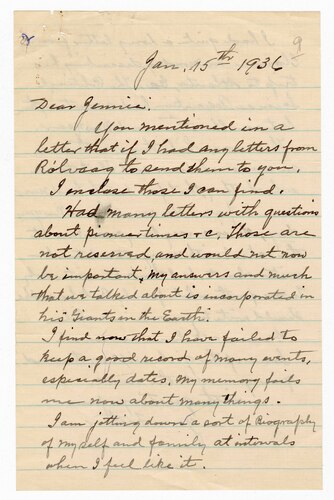 9
Jan. 15th 1936
Dear Jennie:
You mentioned in a
letter that if I had any letters from
Rölvaag to send them to you.
I enclose those I can find.
Had many letters with questions
about pioneer times & c. Those are
not reserved, and would not now
be important. My answers and much
that we talked about is incorporated in
his "Giants in the Earth".
I find now that I have failed to
keep a good record of many events,
especially dates. My memory fails
me now about many things.
I am jotting down a sort of Biography
of myself and family at intervals
when I feel like it.